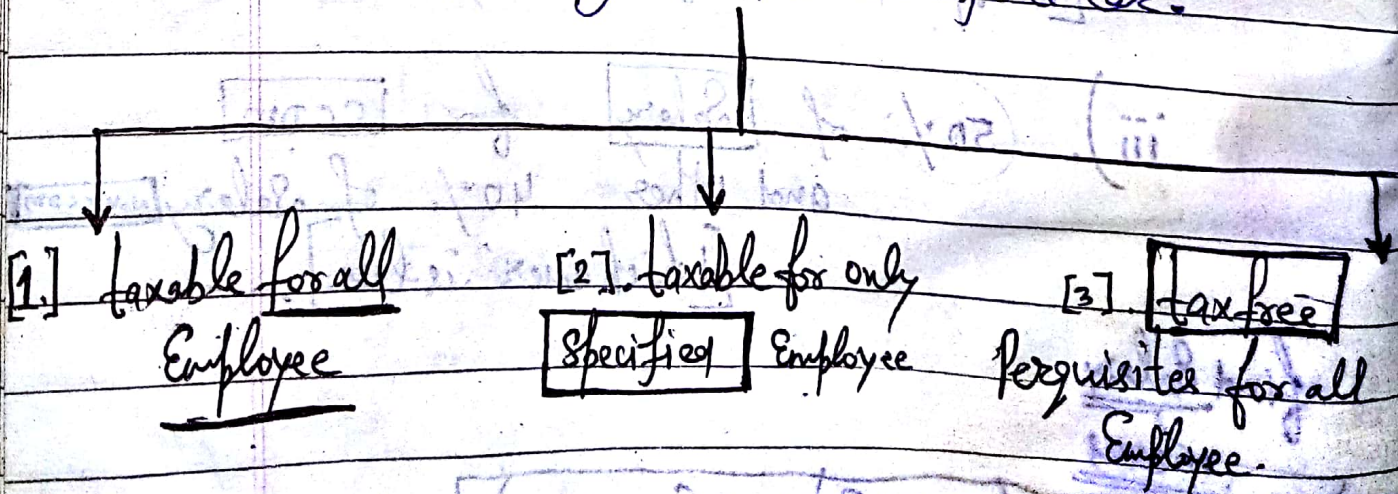 [1.] taxable for all
Employee
[2]. taxable for only
Specified Employee
[3]. tax free
Perquisites for all
Employee.